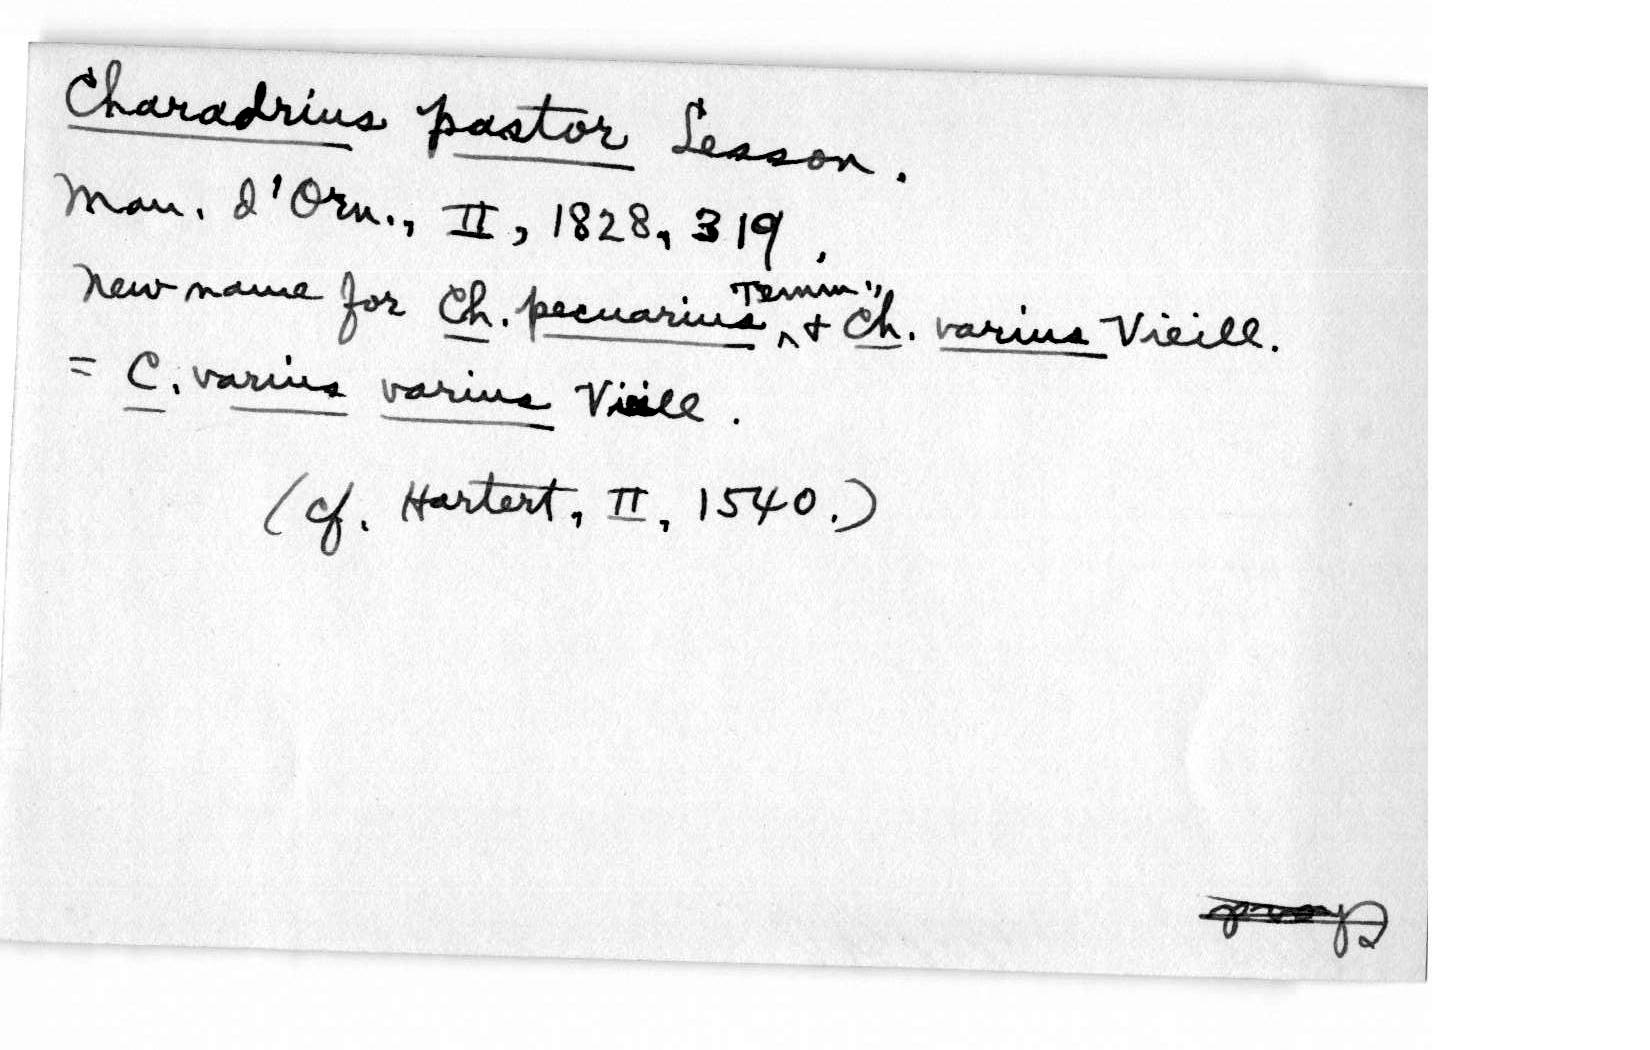 Charadrius pastor Lesson.
Man. d'Orn., II, 1828, 319.
New name for Ch. pecuarius Temm., & Ch. varius Vieill.
= C. varius varius Vieill.
(cf. Hartert, II, 1540.)